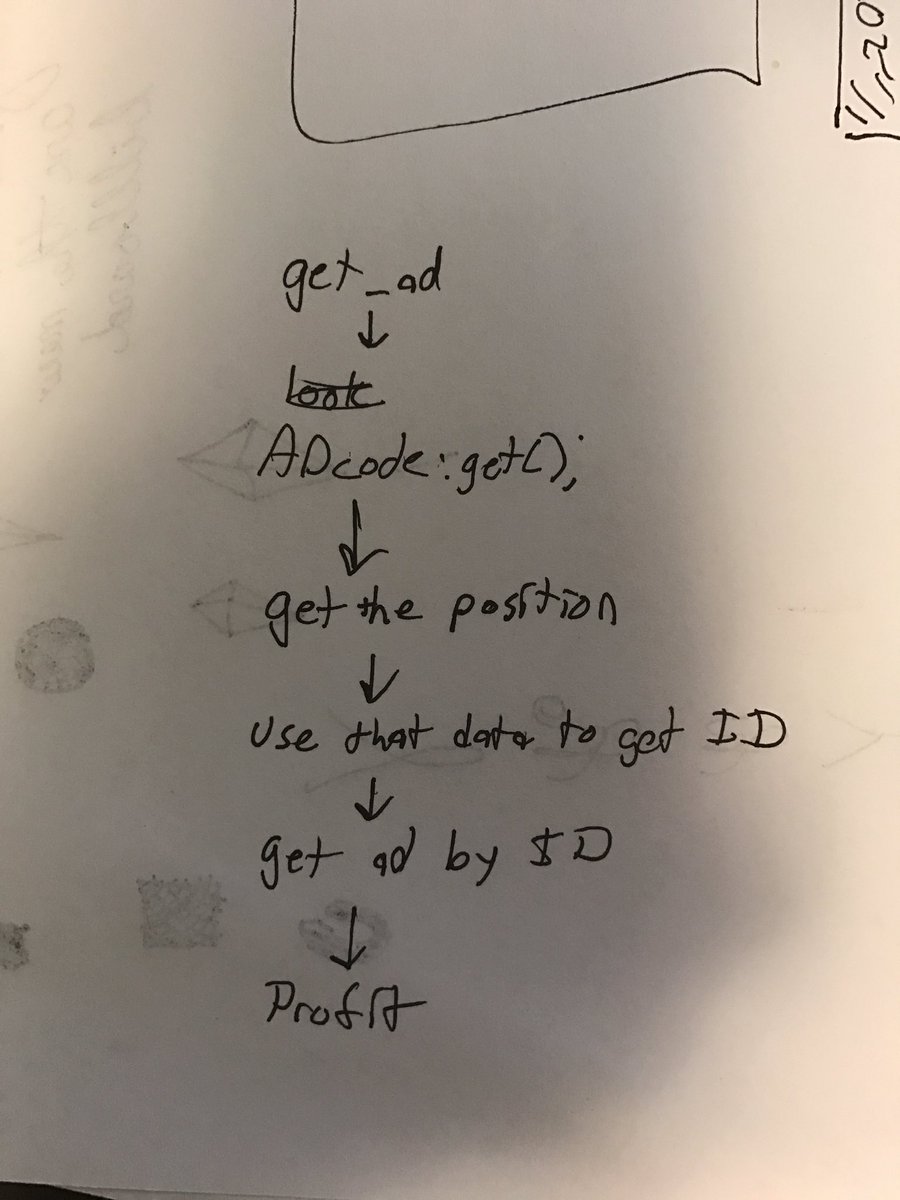 get_ad
↓
look
ADcode::get();
↓
get the position
↓
Use that data to get ID
↓
get ad by ID
↓
Profit